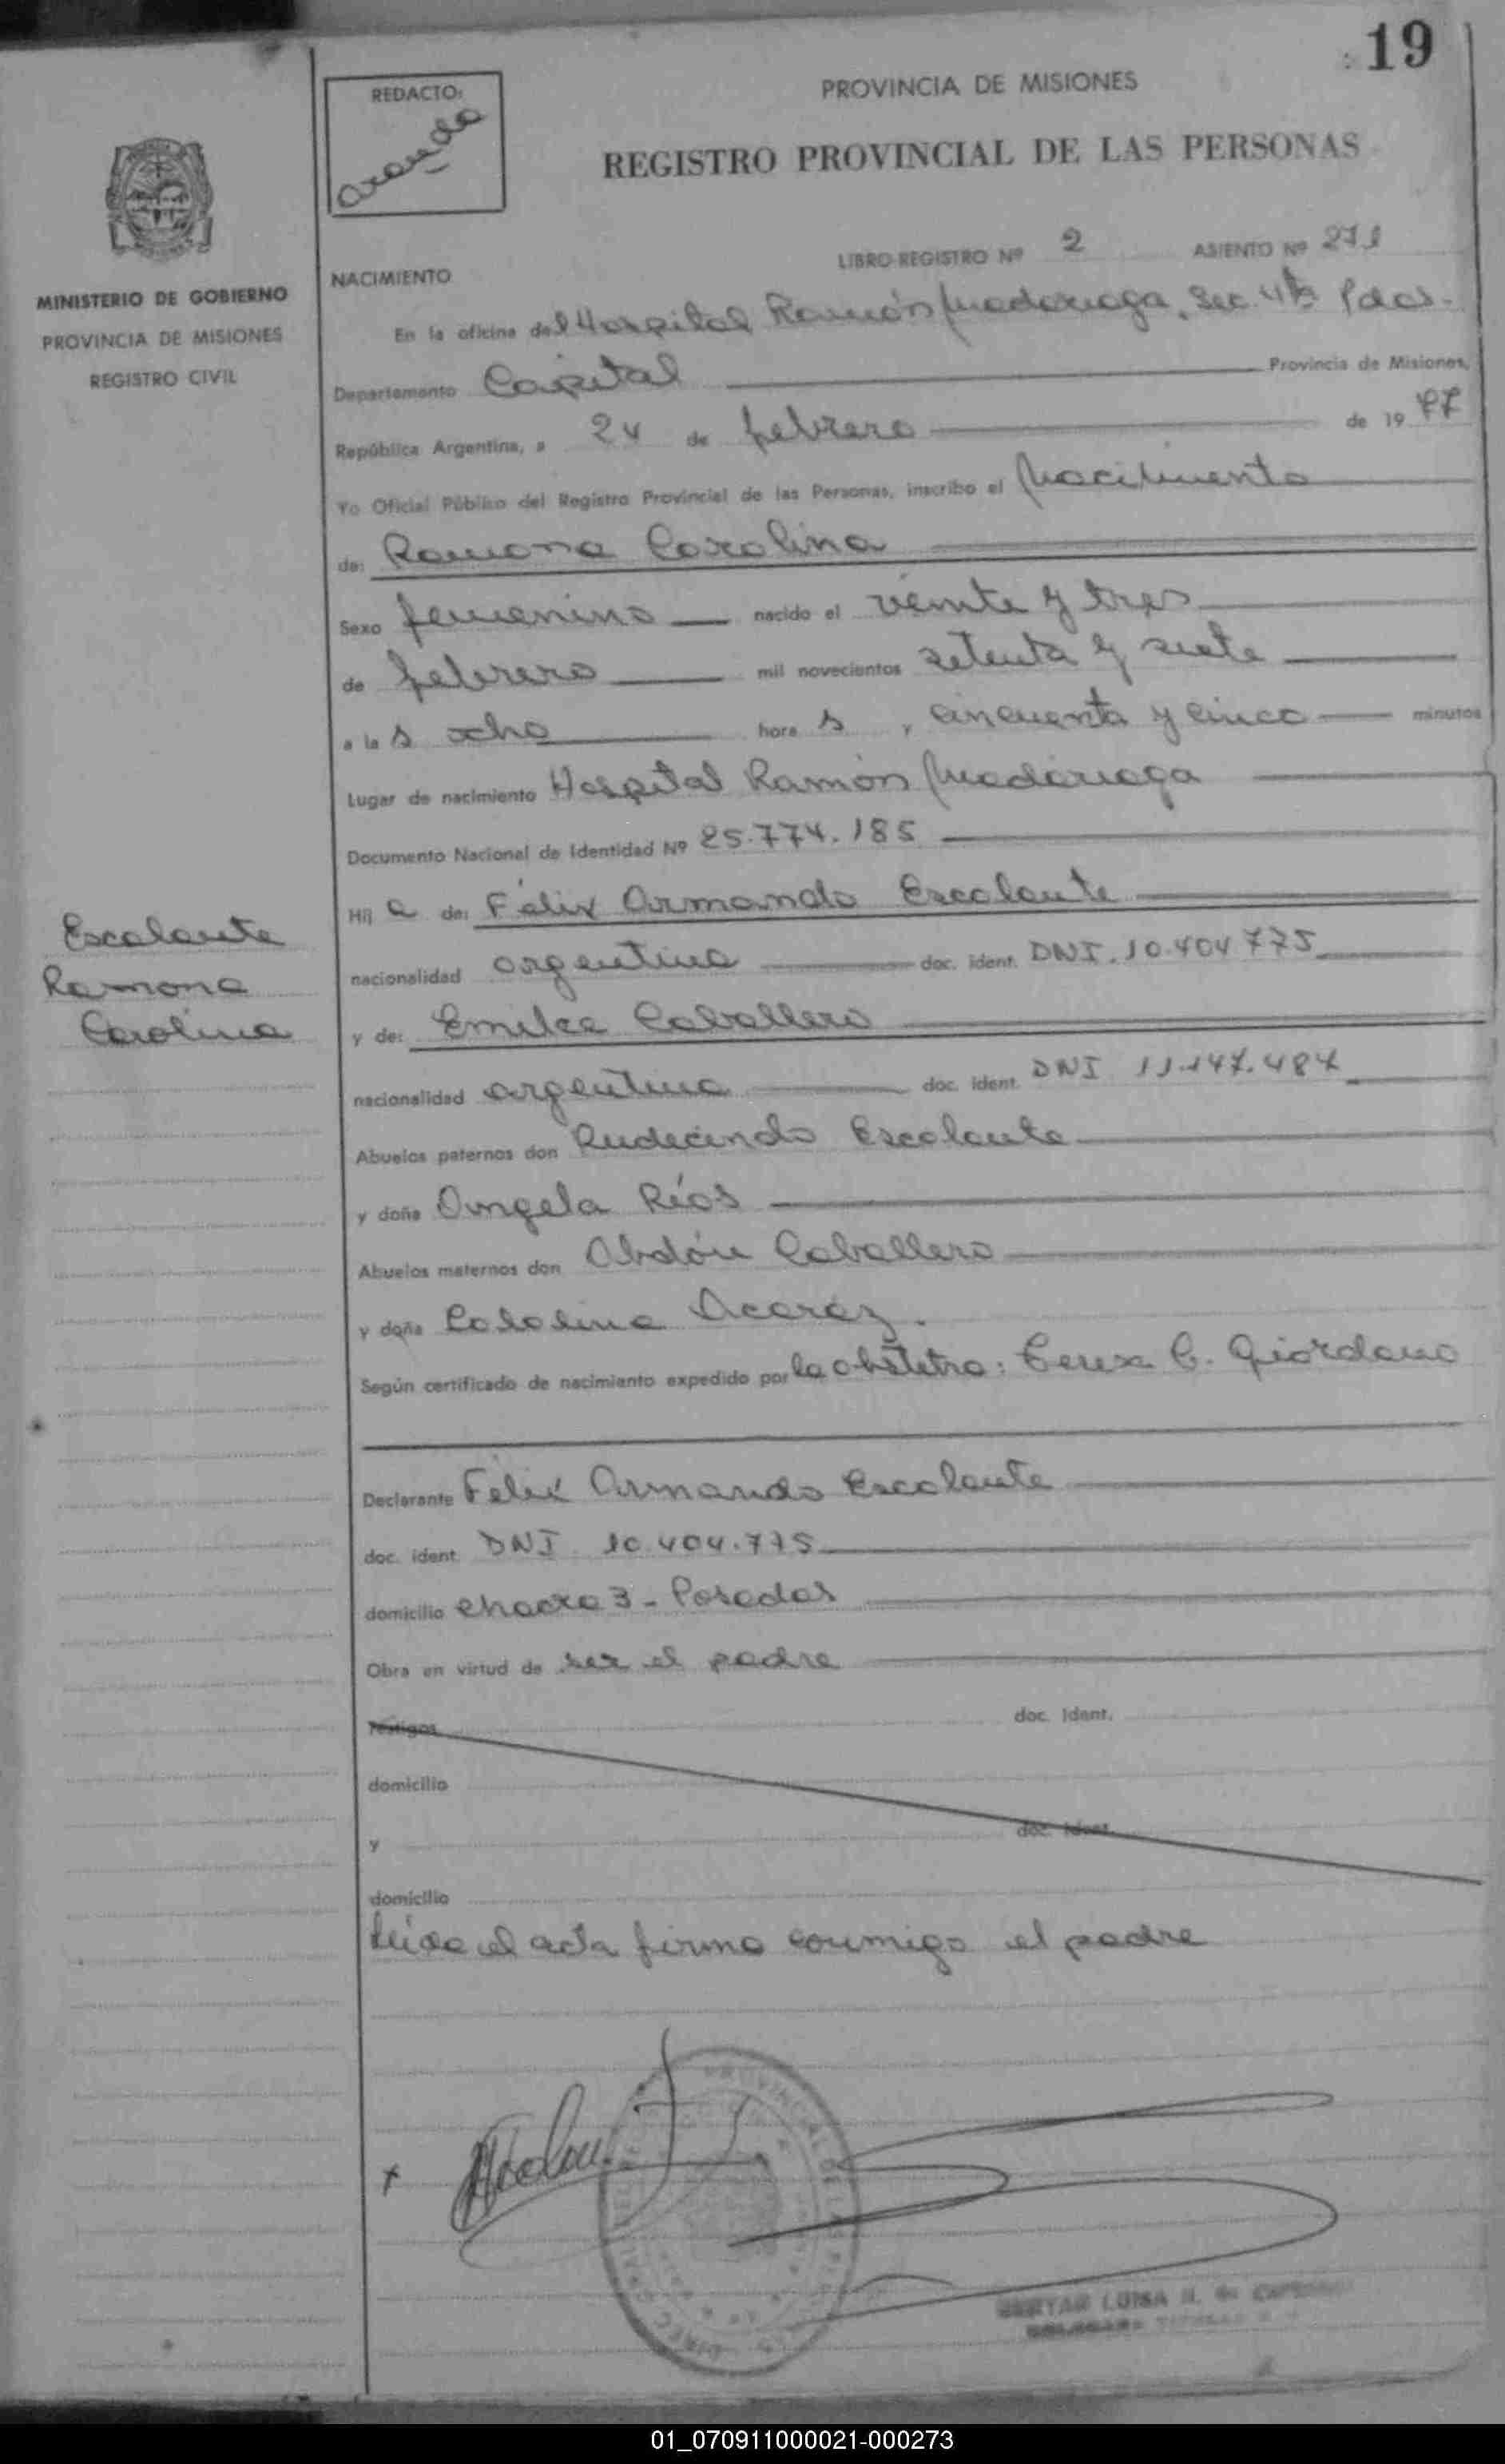 19
REDACTO:
Aranda
PROVINCIA DE MISIONES
REGISTRO PROVINCIAL DE LAS PERSONAS
MINISTERIO DE GOBIERNO
PROVINCIA DE MISIONES
REGISTRO CIVIL
LIBRO-REGISTRO Nº 2 ASIENTO Nº 271
NACIMIENTO
En la oficina del Hospital Ramón Madariaga, Sec. 4ta Pdas.
Departamento Capital Provincia de Misiones,
República Argentina, a 24 de febrero de 1977
Yo Oficial Público del Registro Provincial de las Personas, inscribo el Nacimiento
de: Ramona Carolina
Sexo femenino nacido el veinte y tres
de febrero mil novecientos setenta y siete
a las ocho horas y cincuenta y cinco minutos
Lugar de nacimiento Hospital Ramón Madariaga
Documento Nacional de Identidad Nº 25.774.185
Hija de: Félix Armando Escalante
nacionalidad argentina doc. ident. DNI. 10.404.775
y de: Emilce Caballero
nacionalidad argentina doc. ident. DNI 11.147.487
Abuelos paternos don Rudecindo Escalante
y doña Angela Ríos
Abuelos maternos don Abdón Caballero
y doña Carolina Acaraz.
Según certificado de nacimiento expedido por la obstetra: C. Giordano
Escalante
Ramona
Carolina
Declarante Felix Armando Escalante
doc. ident. DNI 10.404.775
domicilio chacra 3 - Posadas
Obra en virtud de ser el padre
Testigos doc. Ident.
domicilio
y doc. Ident.
domicilio
leída el acta firma conmigo el padre
01_070911000021-000273